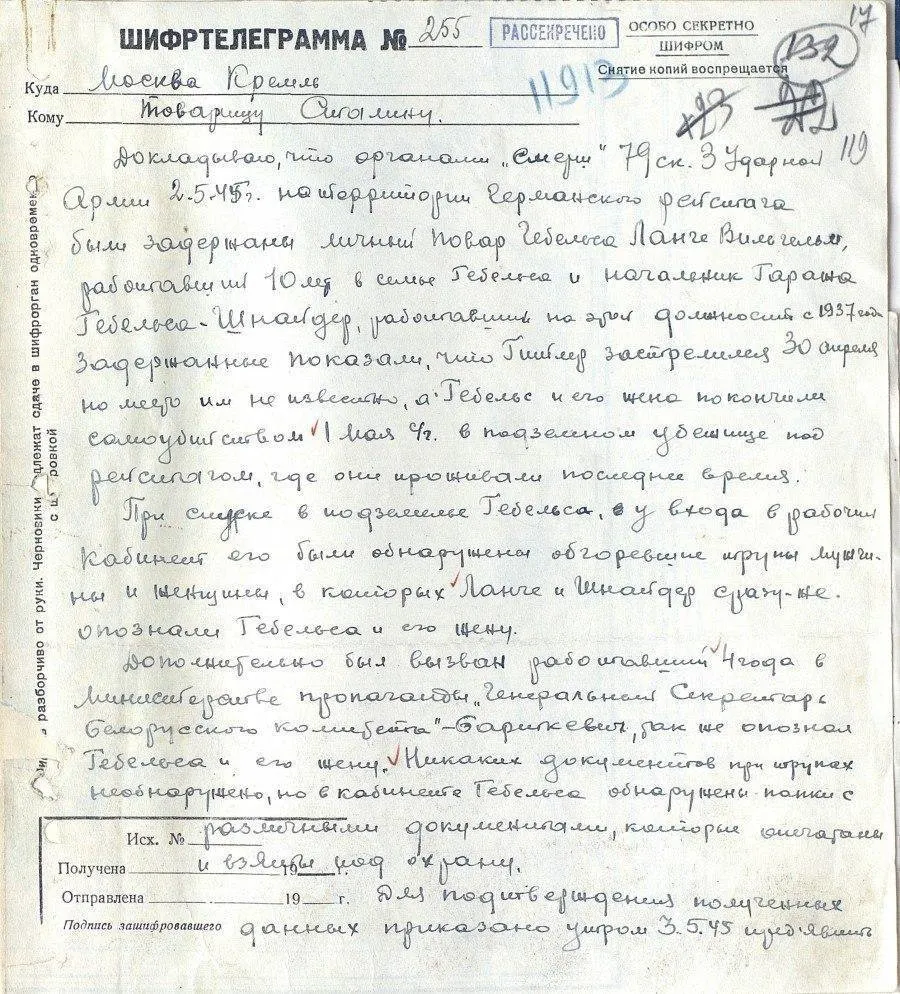 17
ШИФРТЕЛЕГРАММА № 255
РАССЕКРЕЧЕНО
ОСОБО СЕКРЕТНО
ШИФРОМ
Снятие копий воспрещается
132
11913
119
Куда Москва Кремль
Кому Товарищу Сталину.
Докладываю, что органами „Смерш" 79 ск. 3 Ударной
Армии 2.5.45г. на территории Германского рейхстага
были задержаны личный повар Гебельса Ланге Вильгельм,
работавший 10 лет в семье Гебельса и начальник Гаража
Гебельса - Шнайдер, работавший на этой должности с 1937 года
Задержанные показали, что Гитлер застрелился 30 апреля
но место им не известно, а Гебельс и его жена покончили
самоубийством 1 Мая с/г. в подземном убежище под
рейхстагом, где они проживали последнее время.
При спуске в подземелье Гебельса, у входа в рабочий
кабинет его были обнаружены обгоревшие трупы мужчи-
ны и женщины, в которых Ланге и Шнайдер сразу-же
опознали Гебельса и его жену.
Дополнительно был вызван работавший 4 года в
Министерстве пропаганды „Генеральный Секретарь
Белорусского комитета"- так же опознал
Гебельса и его жену. Никаких документов при трупах
необнаружено, но в кабинете Гебельса обнаружены папки с
различными документами, которые опечатаны
и взяты под охрану.
Для подтверждения полученных
данных приказано утром 3.5.45 предъявить
Исх. №
Получена 19 г.
Отправлена 19 г.
Подпись зашифровавшего
разборчиво от руки. Черновики длежат сдаче в шифрорган одновремен
с ш ровкой